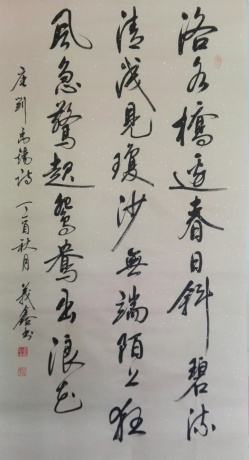 洛水橋邊春日斜碧流
清淺見瓊沙無端陌上狂
風急驚起鴛鴦出浪花
唐劉禹錫詩 丁酉秋月 義鑫書